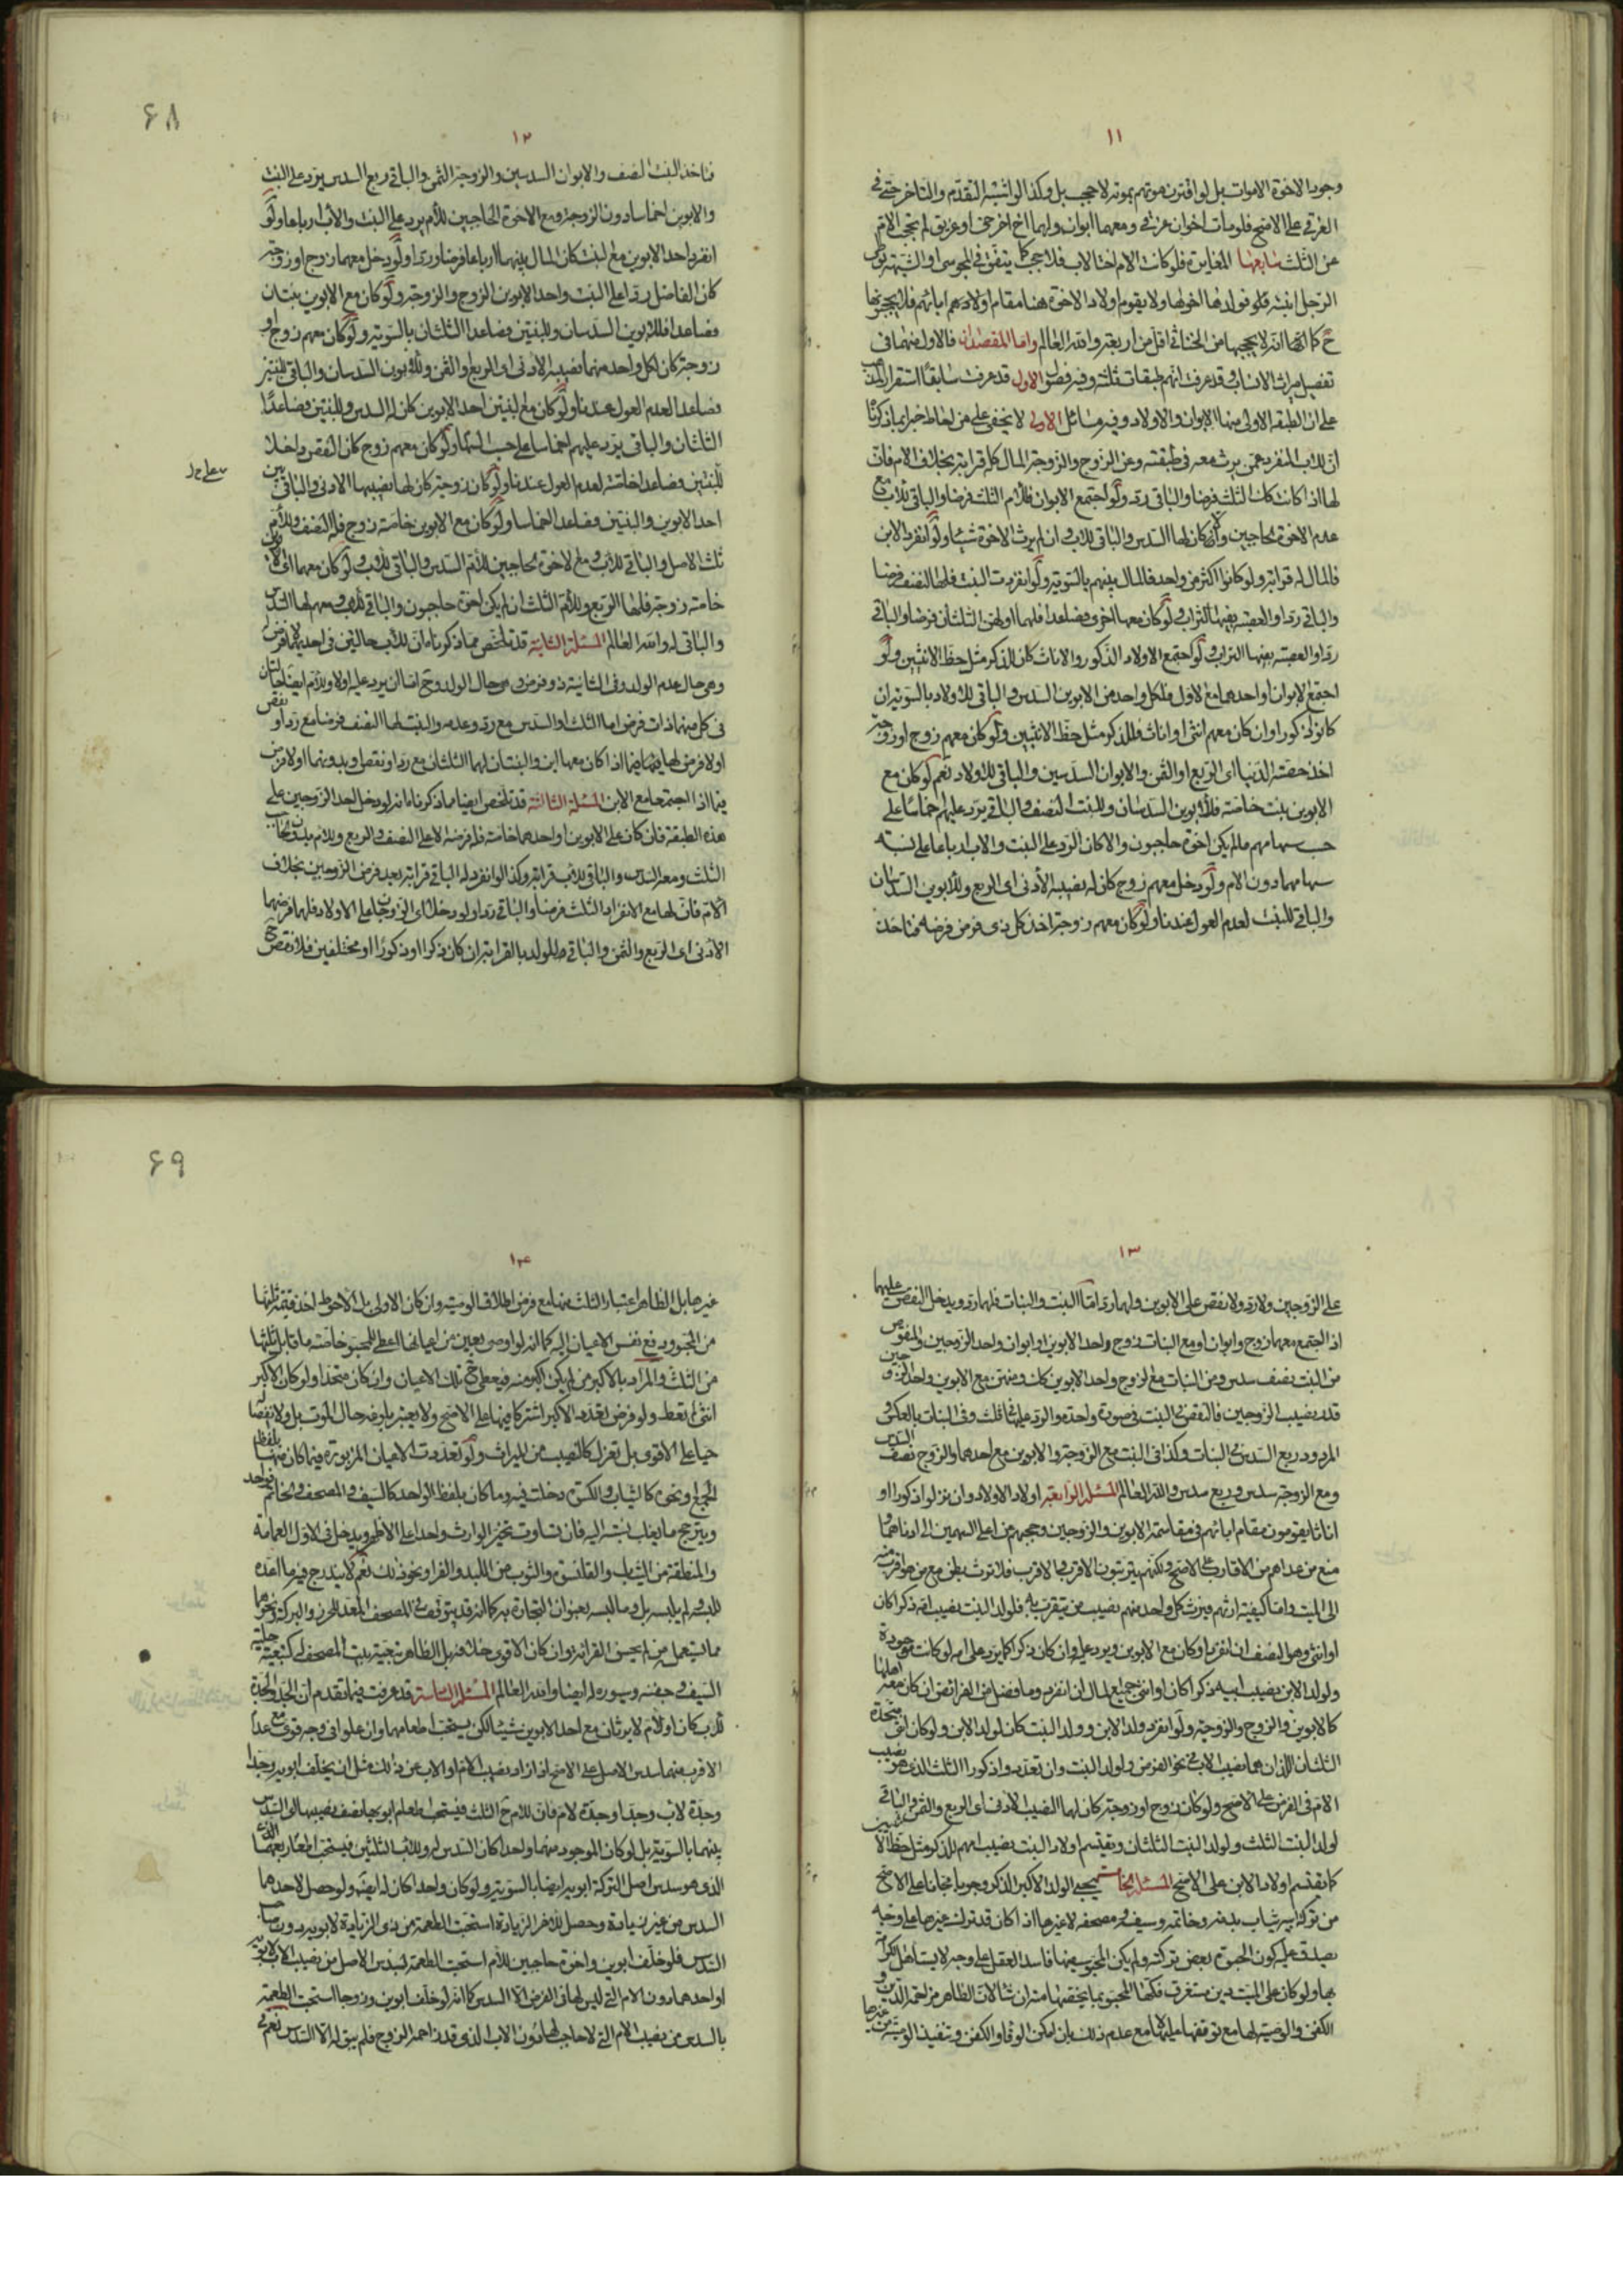 ١١
وجود الاخوة الاموات بل لو اقترن موتهم بموته لا حجب بل وكذا لو اشتبه التقدم والتاخر حتى في
الغرقى على الاصح فلو مات اخوان غرقى ومعهما ابوان ولهما اخ اخر حي او غريق لم يحجب الام
عن الثلث سابعها المغايرة فلو كانت الام اختا لاب فلا حجب كما يتفق في المجوسي او الشبهة
الرجل ابنته فلو فولدها اخوها ولا يقوم اولاد الاخوة هنا مقام اولادهم ابائهم فلا يحجبونها
ح كما انه لا يحجبها من الخناثى اقل من اربعة والله العالم واما المقصدان فالاول منهما في
تفصيل ميراث الانساب وقد عرفت انهم طبقات ثلثة وفيه فصول الاول قد عرفت سابقا استقرار المذهب
على ان الطبقة الاولى منها الابوان والاولاد وفيه مسائل الاولى لا يخفى على من احاط خبرا بما ذكرنا
ان للاب المنفرد عمن يرث معه في طبقته وعن الزوج والزوجة المال كله قرابة بخلاف الام فان
لها اذا كانت كك الثلث فرضا والباقي رد ولو اجتمع الابوان فللام الثلث فرضا والباقي للاب مع
عدم الاخوة الحاجبين وان كان لها السدس والباقي للاب وان لم يرث الاخوة شيئا ولو انفرد الابن
فالمال له قرابة ولو كانوا اكثر من واحد فالمال بينهم بالسوية ولو انفردت البنت فلها النصف فرضا
والباقي ردا والعصبة بفيها التراب ولو كان معها اخرى فصاعدا فلهما او لهن الثلثان فرضا والباقي
ردا والعصبة بفيها التراب ولو اجتمع الاولاد الذكور والاناث كان للذكر مثل حظ الانثيين ولو
اجتمع الابوان او احدهما مع الاول فلكل واحد من الابوين السدس والباقي للاولاد بالسوية ان
كانوا ذكورا وان كان معهم انثى او اناث فللذكر مثل حظ الانثيين ولو كان معهم زوج او زوجة
اخذ حصته الدنيا اى الربع او الثمن والابوان السدسين والباقي للاولاد نعم لو كان مع
الابوين بنت خاصة فللابوين السدسان وللبنت النصف والباقي يرد عليهم اخماسا على
حسب سهامهم ما لم يكن اخوة حاجبون والا كان الرد على البنت والاب ارباعا على نسبة
سهامهما دون الام ولو دخل معهم زوج كان له نصيبه الادنى اى الربع وللابوين السدسان
والباقي للبنت لعدم العول عندنا ولو كان معهم زوجة اخذ كل ذى فرض فرضه فتاخذ
٦٨
١٢
فتاخذ البنت النصف والابوان السدسين والزوجة الثمن والباقي ربع السدس يرد على البنت
والابوين اخماسا دون الزوجة ومع الاخوة الحاجبين للام يرد على البنت والاب ارباعا ولو
انفرد احد الابوين مع البنت كان المال بينهما ارباعا فرضا وردا ولو دخل معهما زوج او زوجة
كان الفاضل ردا على البنت واحد الابوين الزوج والزوجة ولو كان مع الابوين بنتان
فصاعدا فللابوين السدسان وللبنتين فصاعدا الثلثان بالسوية ولو كان معهم زوج او
زوجة كان لكل واحد منهما نصيبه الادنى اى الربع او الثمن وللابوين السدسان والباقي للبنتين
فصاعدا لعدم العول عندنا ولو كان مع البنتين احد الابوين كان له السدس وللبنتين فصاعدا
الثلثان والباقي يرد عليهم اخماسا على حسب السهام ولو كان معهم زوج كان النقص داخلا
للبنتين فصاعدا خاصة لعدم العول عندنا ولو كان زوجة كان لها نصيبها الادنى والباقي بين
احد الابوين والبنتين فصاعدا اخماسا ولو كان مع الابوين خاصة زوج فله النصف وللام
ثلث الاصل والباقي للاب ومع الاخوة الحاجبين للام السدس والباقي للاب ولو كان معهما
خاصة زوجة فلها الربع وللام الثلث ان لم يكن اخوة حاجبون والباقي للاب ومعهم لها السدس
والباقي له والله العالم المسئلة الثانية قد تلخص مما ذكرنا ان للاب حالتين في احديهما لا فرض له
وهى حال عدم الولد وفي الثانية ذو فرض وهى حال الولد وح اما ان يرد عليه اولا وللام ايضا حالتان
في كل منهما ذات فرض اما الثلث او السدس مع رد وعدمه والبنت لها النصف فرضا مع رد او نقص
اولا فرض لها فيما اذا كان معها ابن والبنتان لهما الثلثان مع رد او نقص وبدونهما اولا فرض
فيما اذا اجتمعا مع الابن المسئلة الثالثة قد تلخص ايضا مما ذكرنا انه لو دخل احد الزوجين على
هذه الطبقة فان كان على الابوين او احدهما خاصة فله فرضه الاعلى النصف والربع وللام بدون حاجب
الثلث ومعه السدس والباقي للاب قرابة وكذا لو انفرد له الباقي قرابة بعد فرض الزوجين بخلاف
الام فان لها مع الانفراد الثلث فرضا والباقي ردا ولو دخل اى الزوجان على الاولاد فلهما فرضهما
الادنى اى الربع والثمن والباقي للولد بالقرابة ان كان ذكرا او ذكورا او مختلفين فلا نقص ح
١٣
على الزوجين ولا رد ولا نقص على الابوين ولهما رد اما البنت والبنات فلهما رد ويدخل النقص عليهما
اذا اجتمع معهما زوج وابوان او مع البنات زوج واحد الابوين او ابوان واحد الزوجين والمنقوص
من البنت نصف سدس ومن البنات مع الزوج واحد الابوين كك ومنهن مع الابوين واحد الزوجين
قدر نصيب الزوجين فالنقص في البنت في صورة واحدة والرد عليها في ثلث وفي البنات بالعكس و
المردود ربع السدس في البنات وكذا في البنت مع الزوجة والابوين مع احدهما والزوج نصف السدس
ومع الزوجة سدس وربع سدس والله العالم المسئلة الرابعة اولاد الاولاد وان نزلوا ذكورا او
اناثا يقومون مقام ابائهم في مقاسمة الابوين والزوجين وحجبهم عن اعلى السهمين الى ادناهما و
منع من عداهم من الاقارب على الاصح ولكنهم يترتبون الاقرب فالاقرب فلا ترث بطن مع من هو اقرب منه
الى الميت واما كيفية ارثهم فيرث كل واحد منهم نصيب من يتقرب به فلولد البنت نصيب امه ذكرا كان
او انثى وهو النصف ان انفرد او كان مع الابوين ويرد عليه وان كان ذكرا كما يرد على امه لو كانت موجودة
ولولد الابن نصيب ابيه ذكرا كان او انثى جميع المال ان انفرد وما فضل من الفرائض ان كان معه اهلها
كالابوين والزوج والزوجة ولو انفرد ولد الابن وولد البنت كان لولد الابن ولو كان انثى متحدة
الثلثان اللذان هما نصيب الاب في نحو الفرض ولولد البنت وان تعددوا ذكورا الثلث الذى هو نصيب
الام في الفرض على الاصح ولو كان زوج او زوجة كان لهما النصيب الادنى اى الربع والثمن والباقي
لولد البنت الثلث ولولد البنت الثلثان ويقتسم اولاد البنت نصيب امهم للذكر مثل حظ الانثيين
كما يقتسم اولاد الابن على الاصح المسئلة الخامسة يحبى الولد الاكبر الذكر وجوبا مجانا على الاصح
من تركة ابيه ثياب بدنه وخاتمه وسيفه ومصحفه لا غيرها اذا كان قد ترك غيرها على وجه
يصدق عليه كون الحبوة بعض تركته ولم يكن المحبو سفيها فاسد العقل على وجه لا يستاهل الكرامة
بها ولو كان على الميت دين مستغرق فكها المحبو بما يخصها منه ان شاء لان الظاهر مزاحمة الدين و
الكفن والوصية لها مع توقفها عليها لا مع عدم ذلك بان امكن الوفا والكفن وتنفيذ الوصية من غيرها
٦٩
١٤
غيرها بل الظاهر اعتبار الثلث منها مع فرض اطلاق الوصية وان كان الاولى بل الاحوط اخذ قيمة ثلثها
من المحبو ودفع نفس الاعيان اليه كما انه لو اوصى بعين من اعيانها اعطى المحبو خاصة ما قابل ثلثها
من الثلث والمراد بالاكبر من لم يكن اكبر منه فيعطى ح تلك الاعيان وان كان متحدا ولو كان الاكبر
انثى لم تعط ولو فرض تعدد الاكبر اشتركا فيها على الاصح ولا يعتبر بلوغه حال الموت بل ولا انفصاله
حيا على الاقوى بل تعزل كالنصيب من الميراث ولو تعددت الاعيان المزبورة فما كان منها بلفظ
الجمع او نحوه كالثياب والكسوة دخلت فيه وما كان بلفظ الواحد كالسيف والمصحف والخاتم فواحد
ويترجح ما يغلب نسبته اليه فان تساوت تخير الوارث واحدا على الاظهر ويدخل في الاول العمامة
والمنطقة من الثياب والقلنسوة والثوب من اللبد والفرا ونحو ذلك نعم لا يندرج فيه ما اعده
للبس ولم يلبسه بل وما لبسه بعنوان التجارة به كما انه قد يتوقف في المصحف المعد للحرز والبركة ونحوهما
مما يستعمل من لم يحسن القرائة وان كان الاقوى خلافه بل الظاهر تبعية بيت المصحف له كتبعية حلية
السيف وجفنه وسيوره له ايضا والله العالم المسئلة السادسة قد عرفت فيما تقدم ان الجد والجدة
للاب كان او للام لا يرثان مع احد الابوين شيئا لكن يستحب اطعامهما وان علوا في وجه قوى مع عدم
الاقرب منهما سدس الاصل على الاصح اذا زاد نصيب الام او الاب عن ذلك مثل ان يخلف ابويه وجدا
وجدة لاب وجدا وجدة لام فان للام ح الثلث فيستحب اطعام ابويها نصف نصيبها الى السدس
بينهما بالسوية بل لو كان الموجود منهما واحدا كان السدس له وللاب الثلثين فيستحب اطعام ابويه
الذى هو سدس اصل التركة ابويه ايضا بالسوية ولو كان واحدا كان له ايضه ولو حصل لاحدهما
السدس من غير زيادة وحصل للاخر الزيادة استحب الطعمة من ذى الزيادة لابويه دون صاحب
السدس فلو خلف ابوين واخوة حاجبين للام استحب الطعمة لسدس الاصل من نصيب الاب لابويه
او احدهما دون الام التى ليس لها في الفرض الا السدس كما انه لو خلف ابوين وزوجا استحب الطعمة
بالسدس من نصيب الام التى لا حاجب لها دون الاب الذى قد زاحمه الزوج فلم يبق له الا السدس نعم